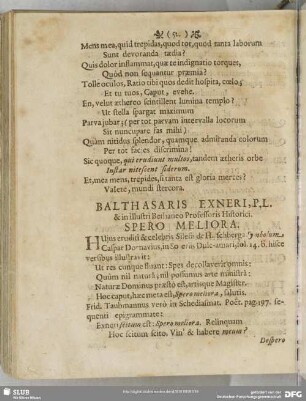 (52.)
Mens mea, quid trepidas, quod tot, quod tanta laborum
Sunt devoranda tædia?
Quis dolor inflammat, quæ te indignatio torquet,
Quòd non sequuntur præmia?
Tolle oculos, Ratio tibi quos dedit hospita, cœlo;
Et tu tuos, Caput, evehe.
En, velut æthereo scintillent lumina templo?
Ut stella spargat maximum
Parva jubar; (per tot parvam intervalla locorum
Sit nuncupare fas mihi)
Quàm nitidus splendor, quamque admiranda colorum
Per tot facies discrimina?
Sic quoque, qui erudiunt multos, tandem ætheris orbe
Instar nitescent siderum.
Et, mea mens, trepides, si tanta est gloria merces?
Valete, mundi stercora.
BALTHASARIS EXNERI, P.L.
& in illustri Bethaneo Professoris Historici.
SPERO MELIORA.
Hujus eruditi & celebris Silesii de H. Symbolum
Caspar Dornavius, in fol. 14. 6. hisce
versibus illustravit:
Ut res cunque fluant: Spes decollaverit omnis:
Quùm nil natura, nil possumus arte ministrâ:
Naturæ Dominus præstò est, artisque Magister.
Hoc caput, hæc meta est, Spero meliora, salutis.
Frid. Taubmannus verò in Schediasmat. Poët. pag. 197. sequenti
epigrammate:
Exneri scitum est: Spero meliora. Relinquam
Hoc scitum scito. Vin' & habere meum?
Despero
SLUB
Wir führen Wissen.
gefördert von der
Deutschen Forschungsgemeinschaft